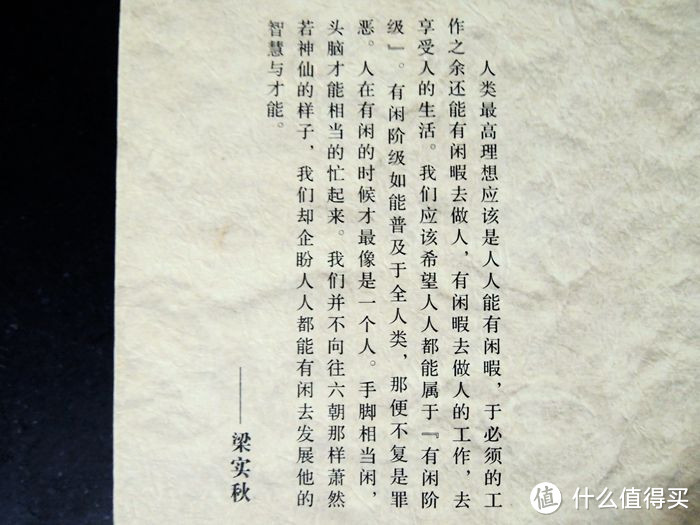 人类最高理想应该是人人能有闲暇，于必须的工
作之余还能有闲暇去做人，有闲暇去做人的工作，去
享受人的生活。我们应该希望人人都能属于『有闲阶
级』。有闲阶级如能普及于全人类，那便不复是罪
恶。人在有闲的时候才最像是一个人。手脚相当闲，
头脑才能相当的忙起来。我们并不向往六朝那样萧然
若神仙的样子，我们却企盼人人都能有闲去发展他的
智慧与才能。
——梁实秋
值 什么值得买